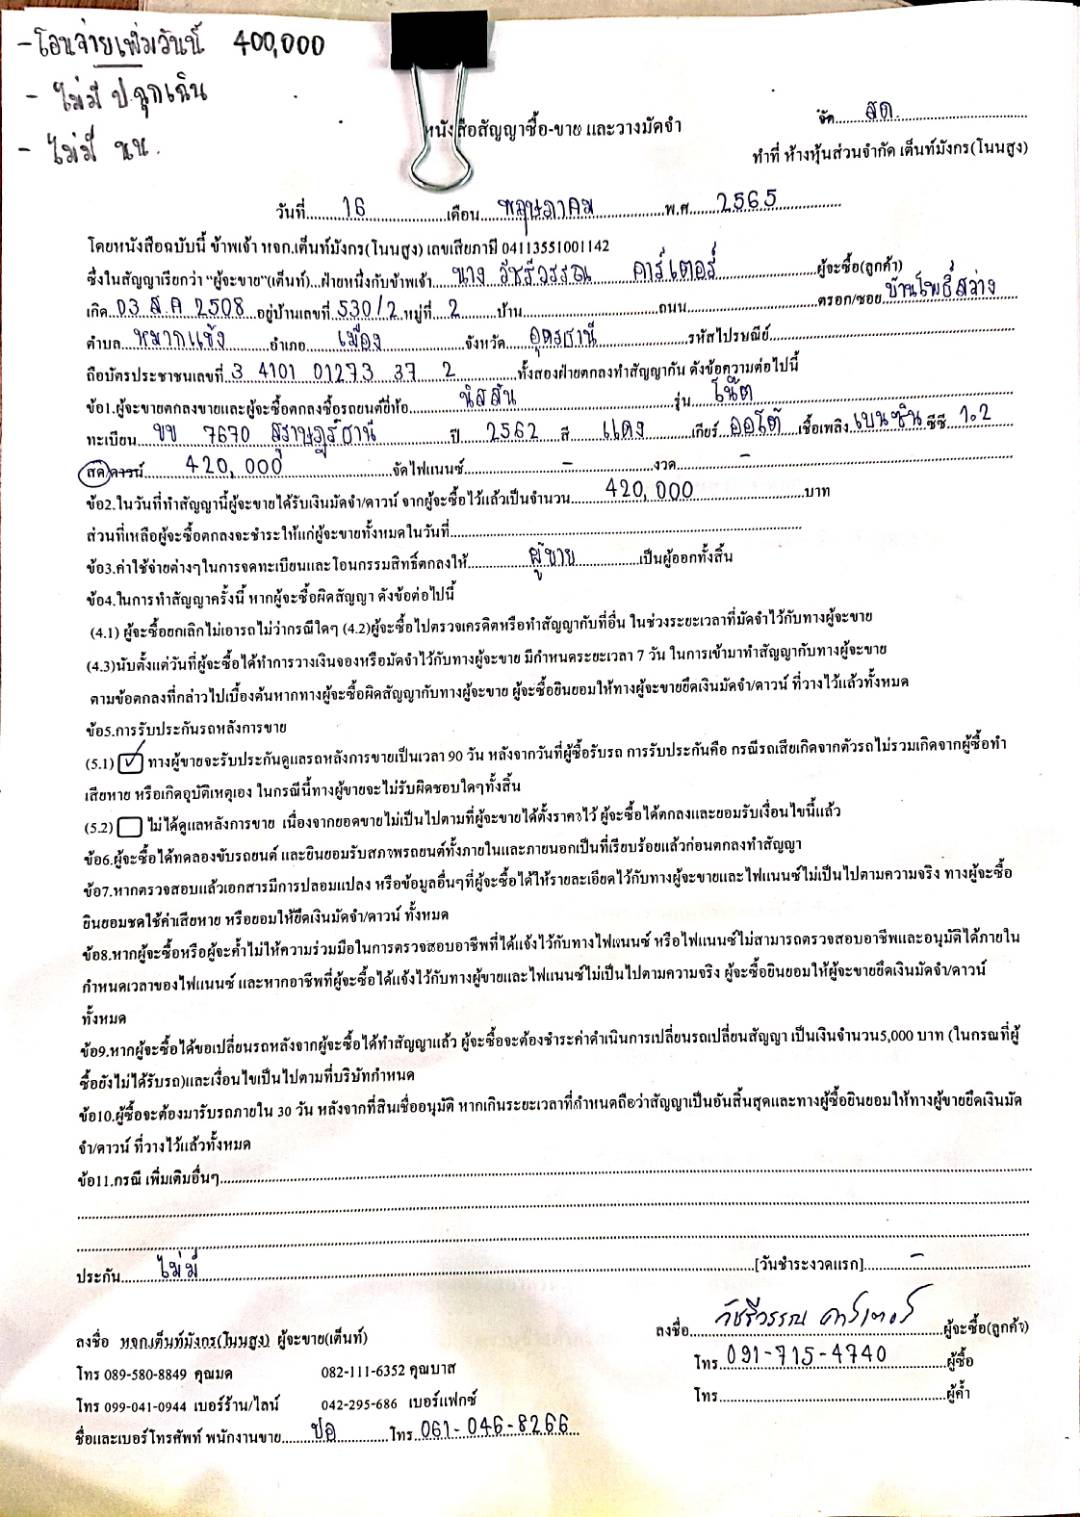 - โอนจ่ายเพิ่มวันนี้ 400,000
- ไม่มี ป.ฉุกเฉิน
- ไม่มี นน.
หนังสือสัญญาซื้อ-ขาย และวางมัดจำ
จัด....สด....
ทำที่ ห้างหุ้นส่วนจำกัด เต็นท์มังกร(โนนสูง)
วันที่....16....เดือน....พฤษภาคม....พ.ศ....2565....
โดยหนังสือฉบับนี้ ข้าพเจ้า หจก.เต็นท์มังกร(โนนสูง) เลขเสียภาษี 04113551001142
ซึ่งในสัญญาเรียกว่า "ผู้จะขาย"(เต็นท์)...ฝ่ายหนึ่งกับข้าพเจ้า....นาง วัชรีวรรณ คาร์เตอร์....ผู้จะซื้อ(ลูกค้า)
เกิด 03 ส.ค 2508 อยู่บ้านเลขที่ 530/2 หมู่ที่ 2 บ้าน....ถนน....ตรอก/ซอย บ้านโพธิ์สว่าง
ตำบล หมากแข้ง อำเภอ เมือง จังหวัด อุดรธานี รหัสไปรษณีย์....
ถือบัตรประชาชนเลขที่ 3 4101 01273 37 2 ....ทั้งสองฝ่ายตกลงทำสัญญากัน ดังข้อความต่อไปนี้
ข้อ1.ผู้จะขายตกลงขายและผู้จะซื้อตกลงซื้อรถยนต์ยี่ห้อ....นิสสัน....รุ่น....โน๊ต....
ทะเบียน ขข 7670 สุราษฎร์ธานี ปี 2562 สี แดง เกียร์ ออโต้ เชื้อเพลิง เบนซิน ซีซี 1.2
สด/ดาวน์....420,000....จัดไฟแนนซ์....-....งวด....-....
ข้อ2.ในวันที่ทำสัญญานี้ผู้จะขายได้รับเงินมัดจำ/ดาวน์ จากผู้จะซื้อไว้แล้วเป็นจำนวน....420,000....บาท
ส่วนที่เหลือผู้จะซื้อตกลงจะชำระให้แก่ผู้จะขายทั้งหมดในวันที่....
ข้อ3.ค่าใช้จ่ายต่างๆในการจดทะเบียนและโอนกรรมสิทธิ์ตกลงให้....ผู้ขาย....เป็นผู้ออกทั้งสิ้น
ข้อ4.ในการทำสัญญาครั้งนี้ หากผู้จะซื้อผิดสัญญา ดังข้อต่อไปนี้
(4.1) ผู้จะซื้อยกเลิกไม่เอารถไม่ว่ากรณีใดๆ (4.2)ผู้จะซื้อไปตรวจเครดิตหรือทำสัญญากับที่อื่น ในช่วงระยะเวลาที่มัดจำไว้กับทางผู้จะขาย
(4.3)นับตั้งแต่วันที่ผู้จะซื้อได้ทำการวางเงินจองหรือมัดจำไว้กับทางผู้จะขาย มีกำหนดระยะเวลา 7 วัน ในการเข้ามาทำสัญญากับทางผู้จะขาย
ตามข้อตกลงที่กล่าวไปเบื้องต้นหากทางผู้จะซื้อผิดสัญญากับทางผู้จะขาย ผู้จะซื้อยินยอมให้ทางผู้จะขายยึดเงินมัดจำ/ดาวน์ ที่วางไว้แล้วทั้งหมด
ข้อ5.การรับประกันรถหลังการขาย
(5.1) ☑ ทางผู้ขายจะรับประกันดูแลรถหลังการขายเป็นเวลา 90 วัน หลังจากวันที่ผู้ซื้อรับรถ การรับประกันคือ กรณีรถเสียเกิดจากตัวรถไม่รวมเกิดจากผู้ซื้อทำ
เสียหาย หรือเกิดอุบัติเหตุเอง ในกรณีนี้ทางผู้ขายจะไม่รับผิดชอบใดๆทั้งสิ้น
(5.2) ☐ ไม่ได้ดูแลหลังการขาย เนื่องจากยอดขายไม่เป็นไปตามที่ผู้จะขายได้ตั้งราคาไว้ ผู้จะซื้อได้ตกลงและยอมรับเงื่อนไขนี้แล้ว
ข้อ6.ผู้จะซื้อได้ทดลองขับรถยนต์ และยินยอมรับสภาพรถยนต์ทั้งภายในและภายนอกเป็นที่เรียบร้อยแล้วก่อนตกลงทำสัญญา
ข้อ7.หากตรวจสอบแล้วเอกสารมีการปลอมแปลง หรือข้อมูลอื่นๆที่ผู้จะซื้อได้ให้รายละเอียดไว้กับทางผู้จะขายและไฟแนนซ์ไม่เป็นไปตามความจริง ทางผู้จะซื้อ
ยินยอมชดใช้ค่าเสียหาย หรือยอมให้ยึดเงินมัดจำ/ดาวน์ ทั้งหมด
ข้อ8.หากผู้จะซื้อหรือผู้จะค้ำไม่ให้ความร่วมมือในการตรวจสอบอาชีพที่ได้แจ้งไว้กับทางไฟแนนซ์ หรือไฟแนนซ์ไม่สามารถตรวจสอบอาชีพและอนุมัติได้ภายใน
กำหนดเวลาของไฟแนนซ์ และหากอาชีพที่ผู้จะซื้อได้แจ้งไว้กับทางผู้ขายและไฟแนนซ์ไม่เป็นไปตามความจริง ผู้จะซื้อยินยอมให้ผู้จะขายยึดเงินมัดจำ/ดาวน์
ทั้งหมด
ข้อ9.หากผู้จะซื้อได้ขอเปลี่ยนรถหลังจากผู้จะซื้อได้ทำสัญญาแล้ว ผู้จะซื้อจะต้องชำระค่าดำเนินการเปลี่ยนรถเปลี่ยนสัญญา เป็นเงินจำนวน5,000 บาท (ในกรณที่ผู้
ซื้อยังไม่ได้รับรถ)และเงื่อนไขเป็นไปตามที่บริษัทกำหนด
ข้อ10.ผู้ซื้อจะต้องมารับรถภายใน 30 วัน หลังจากที่สินเชื่ออนุมัติ หากเกินระยะเวลาที่กำหนดถือว่าสัญญาเป็นอันสิ้นสุดและทางผู้ซื้อยินยอมให้ทางผู้ขายยึดเงินมัด
จำ/ดาวน์ ที่วางไว้แล้วทั้งหมด
ข้อ11.กรณี เพิ่มเติมอื่นๆ....
ประกัน....ไม่มี....[วันชำระงวดแรก]....-....
ลงชื่อ....วัชรีวรรณ คาร์เตอร์....ผู้จะซื้อ(ลูกค้า)
ลงชื่อ หจก.เต็นท์มังกร(โนนสูง) ผู้จะขาย(เต็นท์)
โทร....091-715-4740....ผู้ซื้อ
โทร 089-580-8849 คุณมด 082-111-6352 คุณบาส
โทร....ผู้ค้ำ
โทร 099-041-0944 เบอร์ร้าน/ไลน์ 042-295-686 เบอร์แฟกซ์
ชื่อและเบอร์โทรศัพท์ พนักงานขาย....ปอ....โทร....061-046-8266